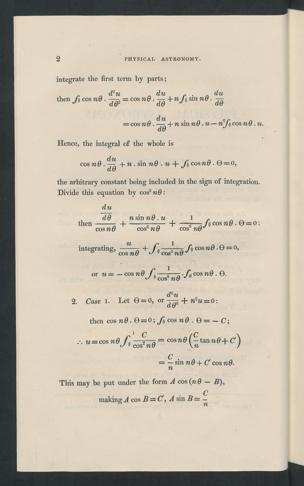 2 PHYSICAL ASTRONOMY.
integrate the first term by parts;
then ∫_θ cos nθ . d²u/dθ² = cos nθ . du/dθ + n ∫_θ sin nθ . du/dθ
= cos nθ . du/dθ + n sin nθ . u − n² ∫_θ cos nθ . u.
Hence, the integral of the whole is
cos nθ . du/dθ + n . sin nθ . u + ∫_θ cos nθ . Θ = 0,
the arbitrary constant being included in the sign of integration.
Divide this equation by cos² nθ:
then (du/dθ)/cos nθ + (n sin nθ . u)/cos² nθ + 1/cos² nθ ∫_θ cos nθ . Θ = 0:
integrating, u/cos nθ + ∫_θ 1/cos² nθ ∫_θ cos nθ . Θ = 0,
or u = − cos nθ ∫_θ 1/cos² nθ . ∫_θ cos nθ . Θ.
2. Case 1. Let Θ = 0, or d²u/dθ² + n²u = 0:
then cos nθ . Θ = 0; ∫_θ cos nθ . Θ = − C;
∴ u = cos nθ ∫_θ C/cos² nθ = cos nθ (C/n tan nθ + C′)
= C/n sin nθ + C′ cos nθ.
This may be put under the form A cos (nθ − B),
making A cos B = C′, A sin B = C/n